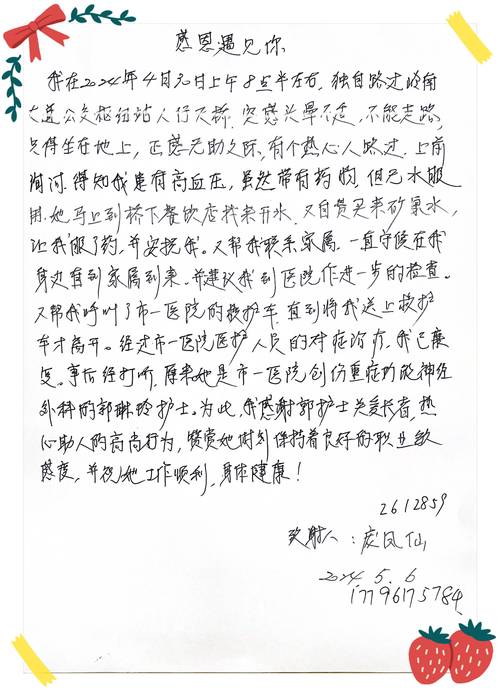 感恩遇见你
我在2024年4月元日上午8点半左右,独自路过岭南
大道公交枢纽站人行天桥,突感头晕不适,不能走路,
只得坐在地上,正感无助之际,有个热心人路过,上前
询问,得知我患有高血压,虽然带有药物,但无水服
用,她马上到桥下餐饮店找来开水,又自费买来矿泉水,
让我服了药,并安抚我。又帮我联系家属,一直守候在我
身边直到家属到来,并建议我到医院作进一步的检查。
又帮我呼叫了市一医院的救护车,直到将我送上救护
车才离开。经过市一医院医护人员的对症治疗,我已康
复。事后经打听,原来她是市一医院创伤重症功能神经
外科的郭琳玲护士。为此,我感谢郭护士关爱长者,热
心助人的高尚行为,赞赏她时刻保持着良好的职业
态度,并祝她工作顺利,身体健康!
2612859
致谢人:庞凤仙
2024.5.6
17796175784